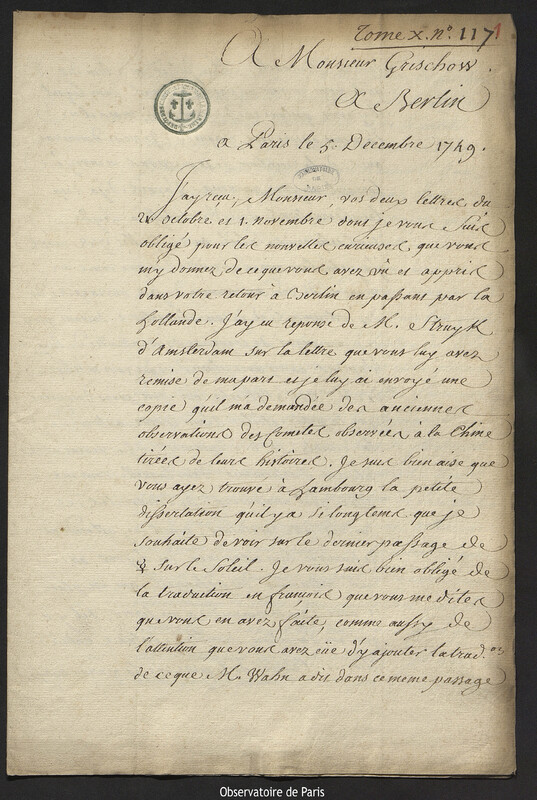 Tome X. nº. 117
A Monsieur Grischow.
A Berlin
a Paris le 5. Decembre 1749.
J'ay reçu, Monsieur, vos deux lettres du
octobre et 1. novembre dont je vous suis
obligé pour les nouvelles curieuses, que vous
my donnez de ce que vous avez vû et appris
dans votre retour à Berlin en passant par la
hollande. J'ay eu reponse de M. Struyk
d'Amsterdam sur la lettre que vous luy avez
remise de ma part et je luy ai envoyé une
copie qu'il m'a demandée des anciennes
observations des Cometes observées à la Chine
tirées de leurs histoires. Je suis bien aise que
vous ayez trouvé à hambourg la petite
dissertation qu'il y a si longtems que je
souhaite de voir sur le dernier passage de
☿ sur le Soleil. Je vous suis bien obligé de
la traduction en françois que vous me dites
que vous en avez faite, comme aussy de
l'attention que vous avez eüe d'y ajouter la trad.on
de ce que M. Wahn a dit dans ce meme passage
Observatoire de Paris